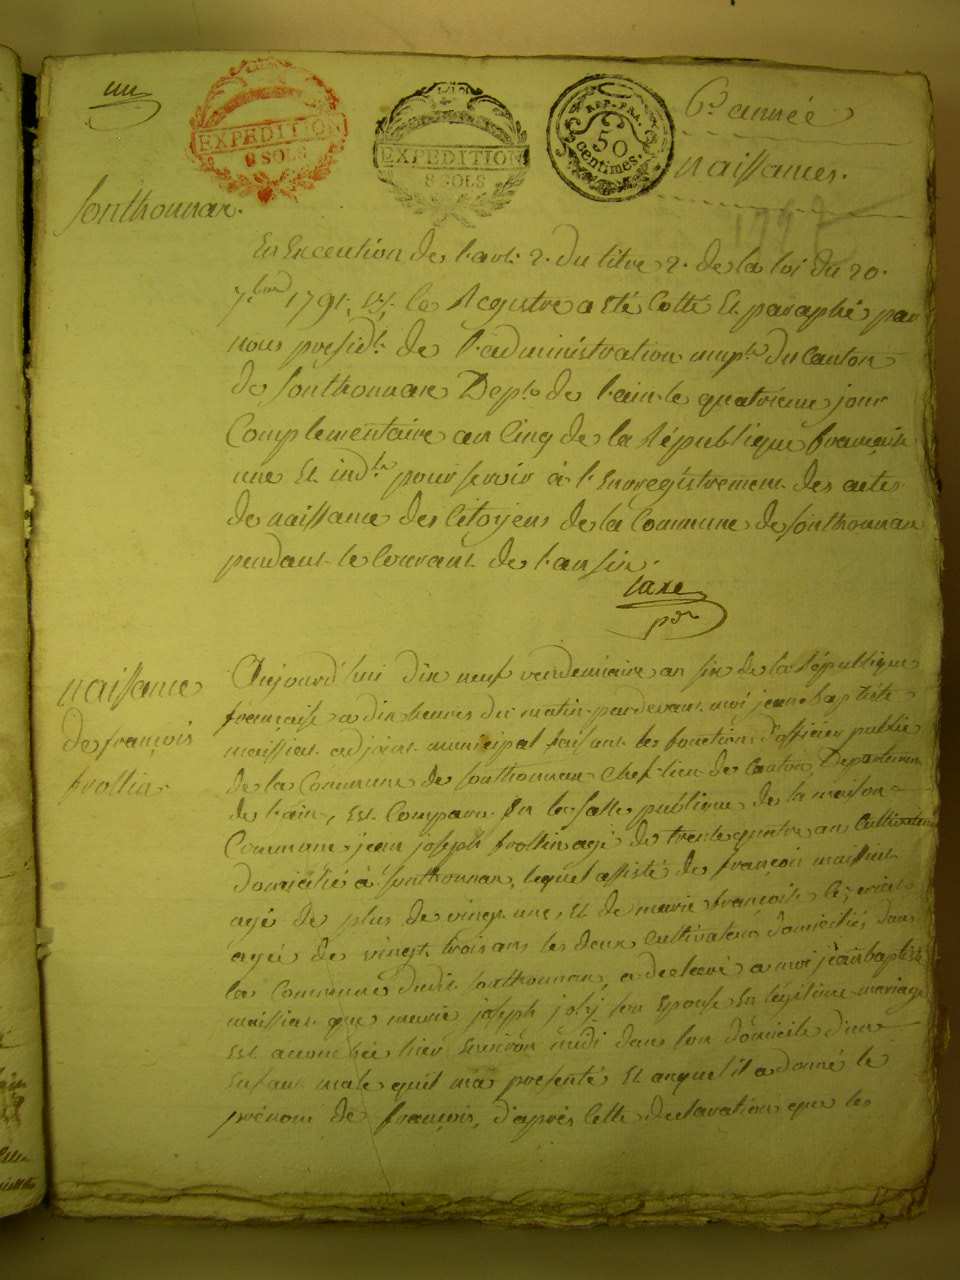 un
EXPEDITION
8 SOLS
EXPEDITION
8 SOLS
REP. FRA.
50
centimes.
6e année
naissances.
Sonthonnax.
En Execution de l'art. 2. du titre 2. de la loi du 20.
7bre 1791, le Registre a eté Cotté Et paraphé par
nous presidt. de l'administration muple. du Canton
de Sonthonnax Dept. de l'ain le quatrieme jour
Complementaire an Cinq de la République française
une Et indle. pour servir à l'Enregistrement des actes
de naissance des Citoyens de la Commune de Sonthonnax
pendant le Courant de l'an six.
pdt
naissance
de françois
frollin.
Aujourd'hui dix neuf vendemiaire an six de la République
francaise a dix heures du matin pardevant moi jean baptiste
maissiat adjoint municipal faisant les fonctions d'officier public
de la Commune de Sonthonnax Chef-lieu de Canton, Departement
de l'ain, Est Comparu En la Salle publique de la maison
Commune jean joseph frollin agé de trente quatre ans Cultivateur
domicilié à Sonthonnax, lequel assisté de françois maissiat
agé de plus de vingt une, Et de marie françoise
agée de vingt trois ans les deux Cultivateurs domiciliés dans
la Commune dudit Sonthonnax, a declaré a moi jean baptiste
maissiat que marie joseph joly son Epouse En légitime mariage
Est accouchée hier Environ midi dans son domicile d'un
Enfant male quil ma presenté Et auquel il a donné le
prénom de françois, d'après Cette declaration que les